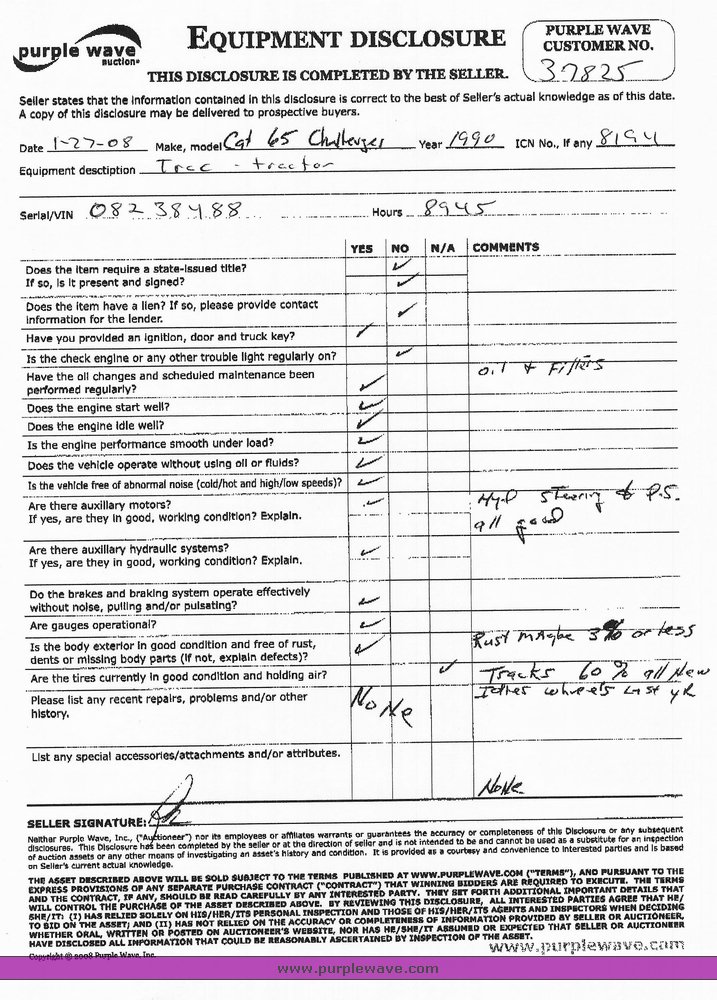 purple wave
auction
EQUIPMENT DISCLOSURE
PURPLE WAVE
CUSTOMER NO.
37825
THIS DISCLOSURE IS COMPLETED BY THE SELLER.
Seller states that the information contained in this disclosure is correct to the best of Seller's actual knowledge as of this date.
A copy of this disclosure may be delivered to prospective buyers.
Date 1-27-08 Make, model Cat 65 Challenger Year 1990 ICN No., if any 8194
Equipment desctiption Trac - tractor
Serial/VIN 08238488 Hours 8945
YES NO N/A COMMENTS
Does the item require a state-issued title? ✓
If so, is it present and signed? ✓
Does the item have a lien? If so, please provide contact
information for the lender. ✓
Have you provided an ignition, door and truck key? ✓
Is the check engine or any other trouble light regularly on? ✓
Have the oil changes and scheduled maintenance been oil & Filters
performed regularly? ✓
Does the engine start well? ✓
Does the engine idle well? ✓
Is the engine performance smooth under load? ✓
Does the vehicle operate without using oil or fluids? ✓
Is the vehicle free of abnormal noise (cold/hot and high/low speeds)? ✓
Are there auxiliary motors? ✓ Hyd Steering & P.S.
If yes, are they in good, working condition? Explain. all good
Are there auxiliary hydraulic systems? ✓
If yes, are they in good, working condition? Explain.
Do the brakes and braking system operate effectively
without noise, pulling and/or pulsating? ✓
Are gauges operational? ✓
Is the body exterior in good condition and free of rust, ✓ Rust maybe 3% or less
dents or missing body parts (if not, explain defects)?
Are the tires currently in good condition and holding air? ✓ Tracks 60% all New
Please list any recent repairs, problems and/or other None Idler wheels last yR
history.
List any special accessories/attachments and/or attributes.
None
SELLER SIGNATURE:
Neither Purple Wave, Inc., ("Auctioneer") nor its employees or affiliates warrants or guarantees the accuracy or completeness of this Disclosure or any subsequent
disclosures. This Disclosure has been completed by the seller or at the direction of seller and is not intended to be and cannot be used as a substitute for an inspection
of auction assets or any other means of investigating an asset's history and condition. It is provided as a courtesy and convenience to interested parties and is based
on Seller's current actual knowledge.
THE ASSET DESCRIBED ABOVE WILL BE SOLD SUBJECT TO THE TERMS PUBLISHED AT WWW.PURPLEWAVE.COM ("TERMS"), AND PURSUANT TO THE
EXPRESS PROVISIONS OF ANY SEPARATE PURCHASE CONTRACT ("CONTRACT") THAT WINNING BIDDERS ARE REQUIRED TO EXECUTE. THE TERMS
AND THE CONTRACT, IF ANY, SHOULD BE READ CAREFULLY BY ANY INTERESTED PARTY. THEY SET FORTH ADDITIONAL IMPORTANT DETAILS THAT
WILL CONTROL THE PURCHASE OF THE ASSET DESCRIBED ABOVE. BY REVIEWING THIS DISCLOSURE, ALL INTERESTED PARTIES AGREE THAT HE/
SHE/IT: (I) HAS RELIED SOLELY ON HIS/HER/ITS PERSONAL INSPECTION AND THOSE OF HIS/HER/ITS AGENTS AND INSPECTORS WHEN DECIDING
TO BID ON THE ASSET; AND (II) HAS NOT RELIED ON THE ACCURACY OR COMPLETENESS OF INFORMATION PROVIDED BY SELLER OR AUCTIONEER,
WHETHER ORAL, WRITTEN OR POSTED ON AUCTIONEER'S WEBSITE, NOR HAS HE/SHE/IT ASSUMED OR EXPECTED THAT SELLER OR AUCTIONEER
HAVE DISCLOSED ALL INFORMATION THAT COULD BE REASONABLY ASCERTAINED BY INSPECTION OF THE ASSET.
www.purplewave.com
Copyright @ 2008 Purple Wave, Inc.
www.purplewave.com